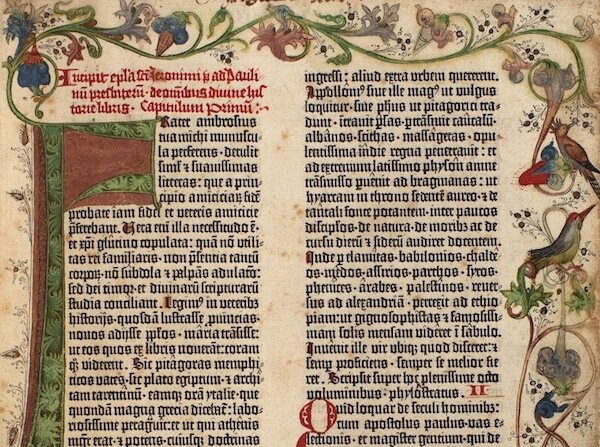 Incipit epl̃a sc̃i Iheronimi p̄ ad Pauli
nū presbiterū · de omnibus diuine his
torie libris · Capitulum Primum :
Frater ambrosius
tua michi munuscu
la preferens · detulit
sim̄l et suauissimas
litteras : que a prin-
cipio amiciciar̄ · fidē
probate iam fidei et veteris amicicie
p̄ferebant. Uera em̄ illa necessitudo ē ·
et xp̄i glutino copulata : quā nō utili-
tas rei familiaris · nō p̄sentia tantū
corpoꝝ · nō subdola et palpās adulac̄o :
sed dei timor · et diuinaꝝ scripturarū
studia conciliant. Legim⁹ in veteribꝫ
historijs · quosdā lustrasse ꝓuincias ·
nouos adijsse ppl̄os · maria trāsisse :
ut eos quos ex libris nouerāt : coram
ꝗ viderent. Sic pitagoras memphi-
ticos vates · sic plato egiptum · et archi-
tam tarentinū · eamꝙ orā ytalie · que
quondā magna grecia diceba᷑ : labo-
riosissime peragrauit : et ut qui athenis
mgr̄ erat · et potens · cuiusꝙ doctrinas
ingressi : aliud extra urbem quererent.
Apollonius siue ille mag⁹ ut vulgus
loquitur · siue ph̄us ut pitagorici tra-
dunt · ītrauit ꝑsas · ꝑtrāsiuit caucasū ·
albanos · scithas · massagetas · opu-
lentissima indie regna penetrauit : et
ad extremum latissimo physon amne
trāsmisso ꝓuenit ad bragmanas : ut
hyarcam in throno sedentē aureo · et de
tantali fonte potantem · inter paucos
discipl̄os · de natura · de moribꝫ ac de
cursu dierū et siderū audiret docentem.
Inde ꝑ elamitas · babilonios · chalde-
os · medos · assirios · parthos · syros ·
phenices · arabes · palestinos · reuer-
sus ad alexandriā · perrexit ad ethio-
piam : ut gignosophistas et famosissi-
mam solis mensam videret ī sabulo.
Inuenit ille vir ubiꝙ quod disceret : et
semꝑ proficiens · semper se melior fie-
ret. Scripsit super hoc plenissime octo
voluminibus · phylostratus. II
Quid loquar de seculi hominibꝫ :
cum apostolus paulus · vas e-
lectionis · et magister gentium · qui de